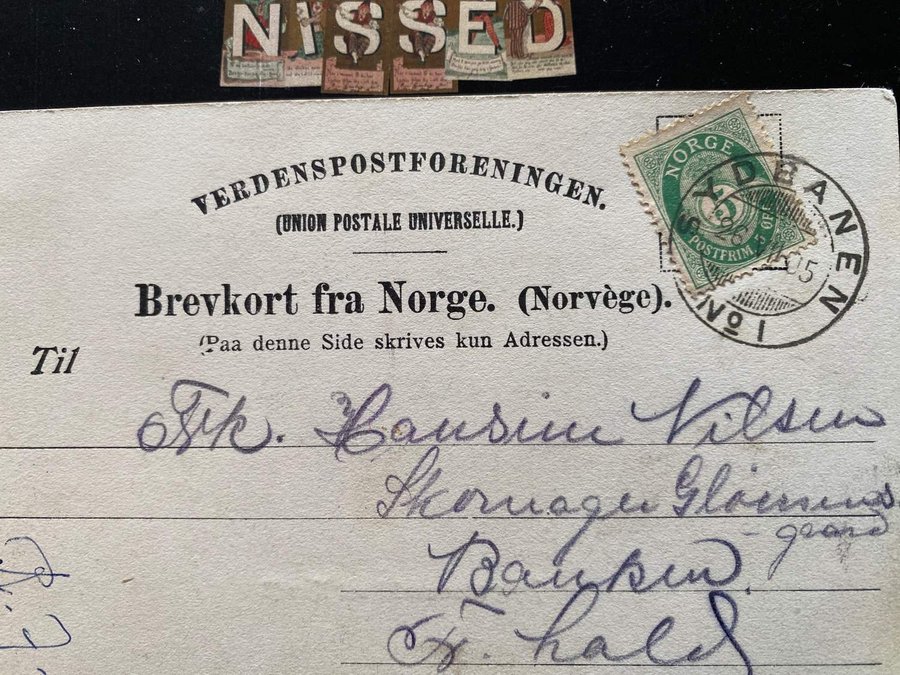 NISSED
VERDENSPOSTFORENINGEN.
(UNION POSTALE UNIVERSELLE.)
Brevkort fra Norge. (Norvège).
(Paa denne Side skrives kun Adressen.)
NORGE
5
POSTFRIM. 5 ØRE
SYDBANEN No 1
05
Til
Frk. Hansine Nilsen
Skomager
gaard
Banken
Fr. hald